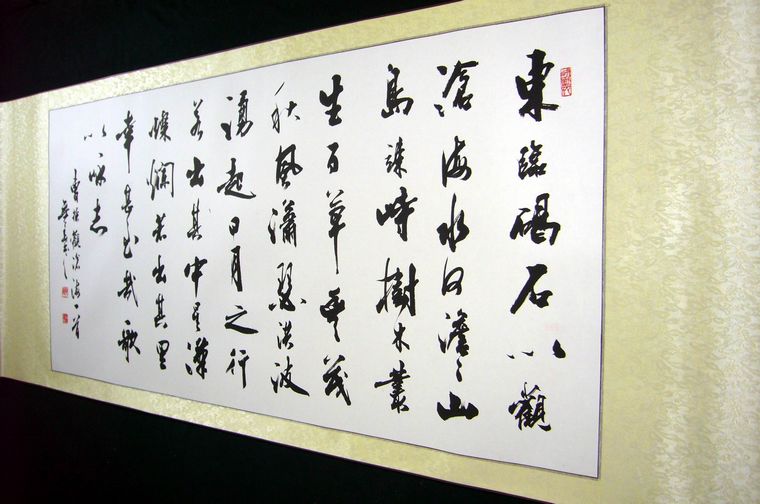 東臨碣石以觀
滄海水何澹〻山
島竦峙樹木叢
生百草豐茂
秋風瀟瑟洪波
湧起日月之行
若出其中星漢
燦爛若出其里
幸甚至哉歌
以詠志
曹操觀滄海一首